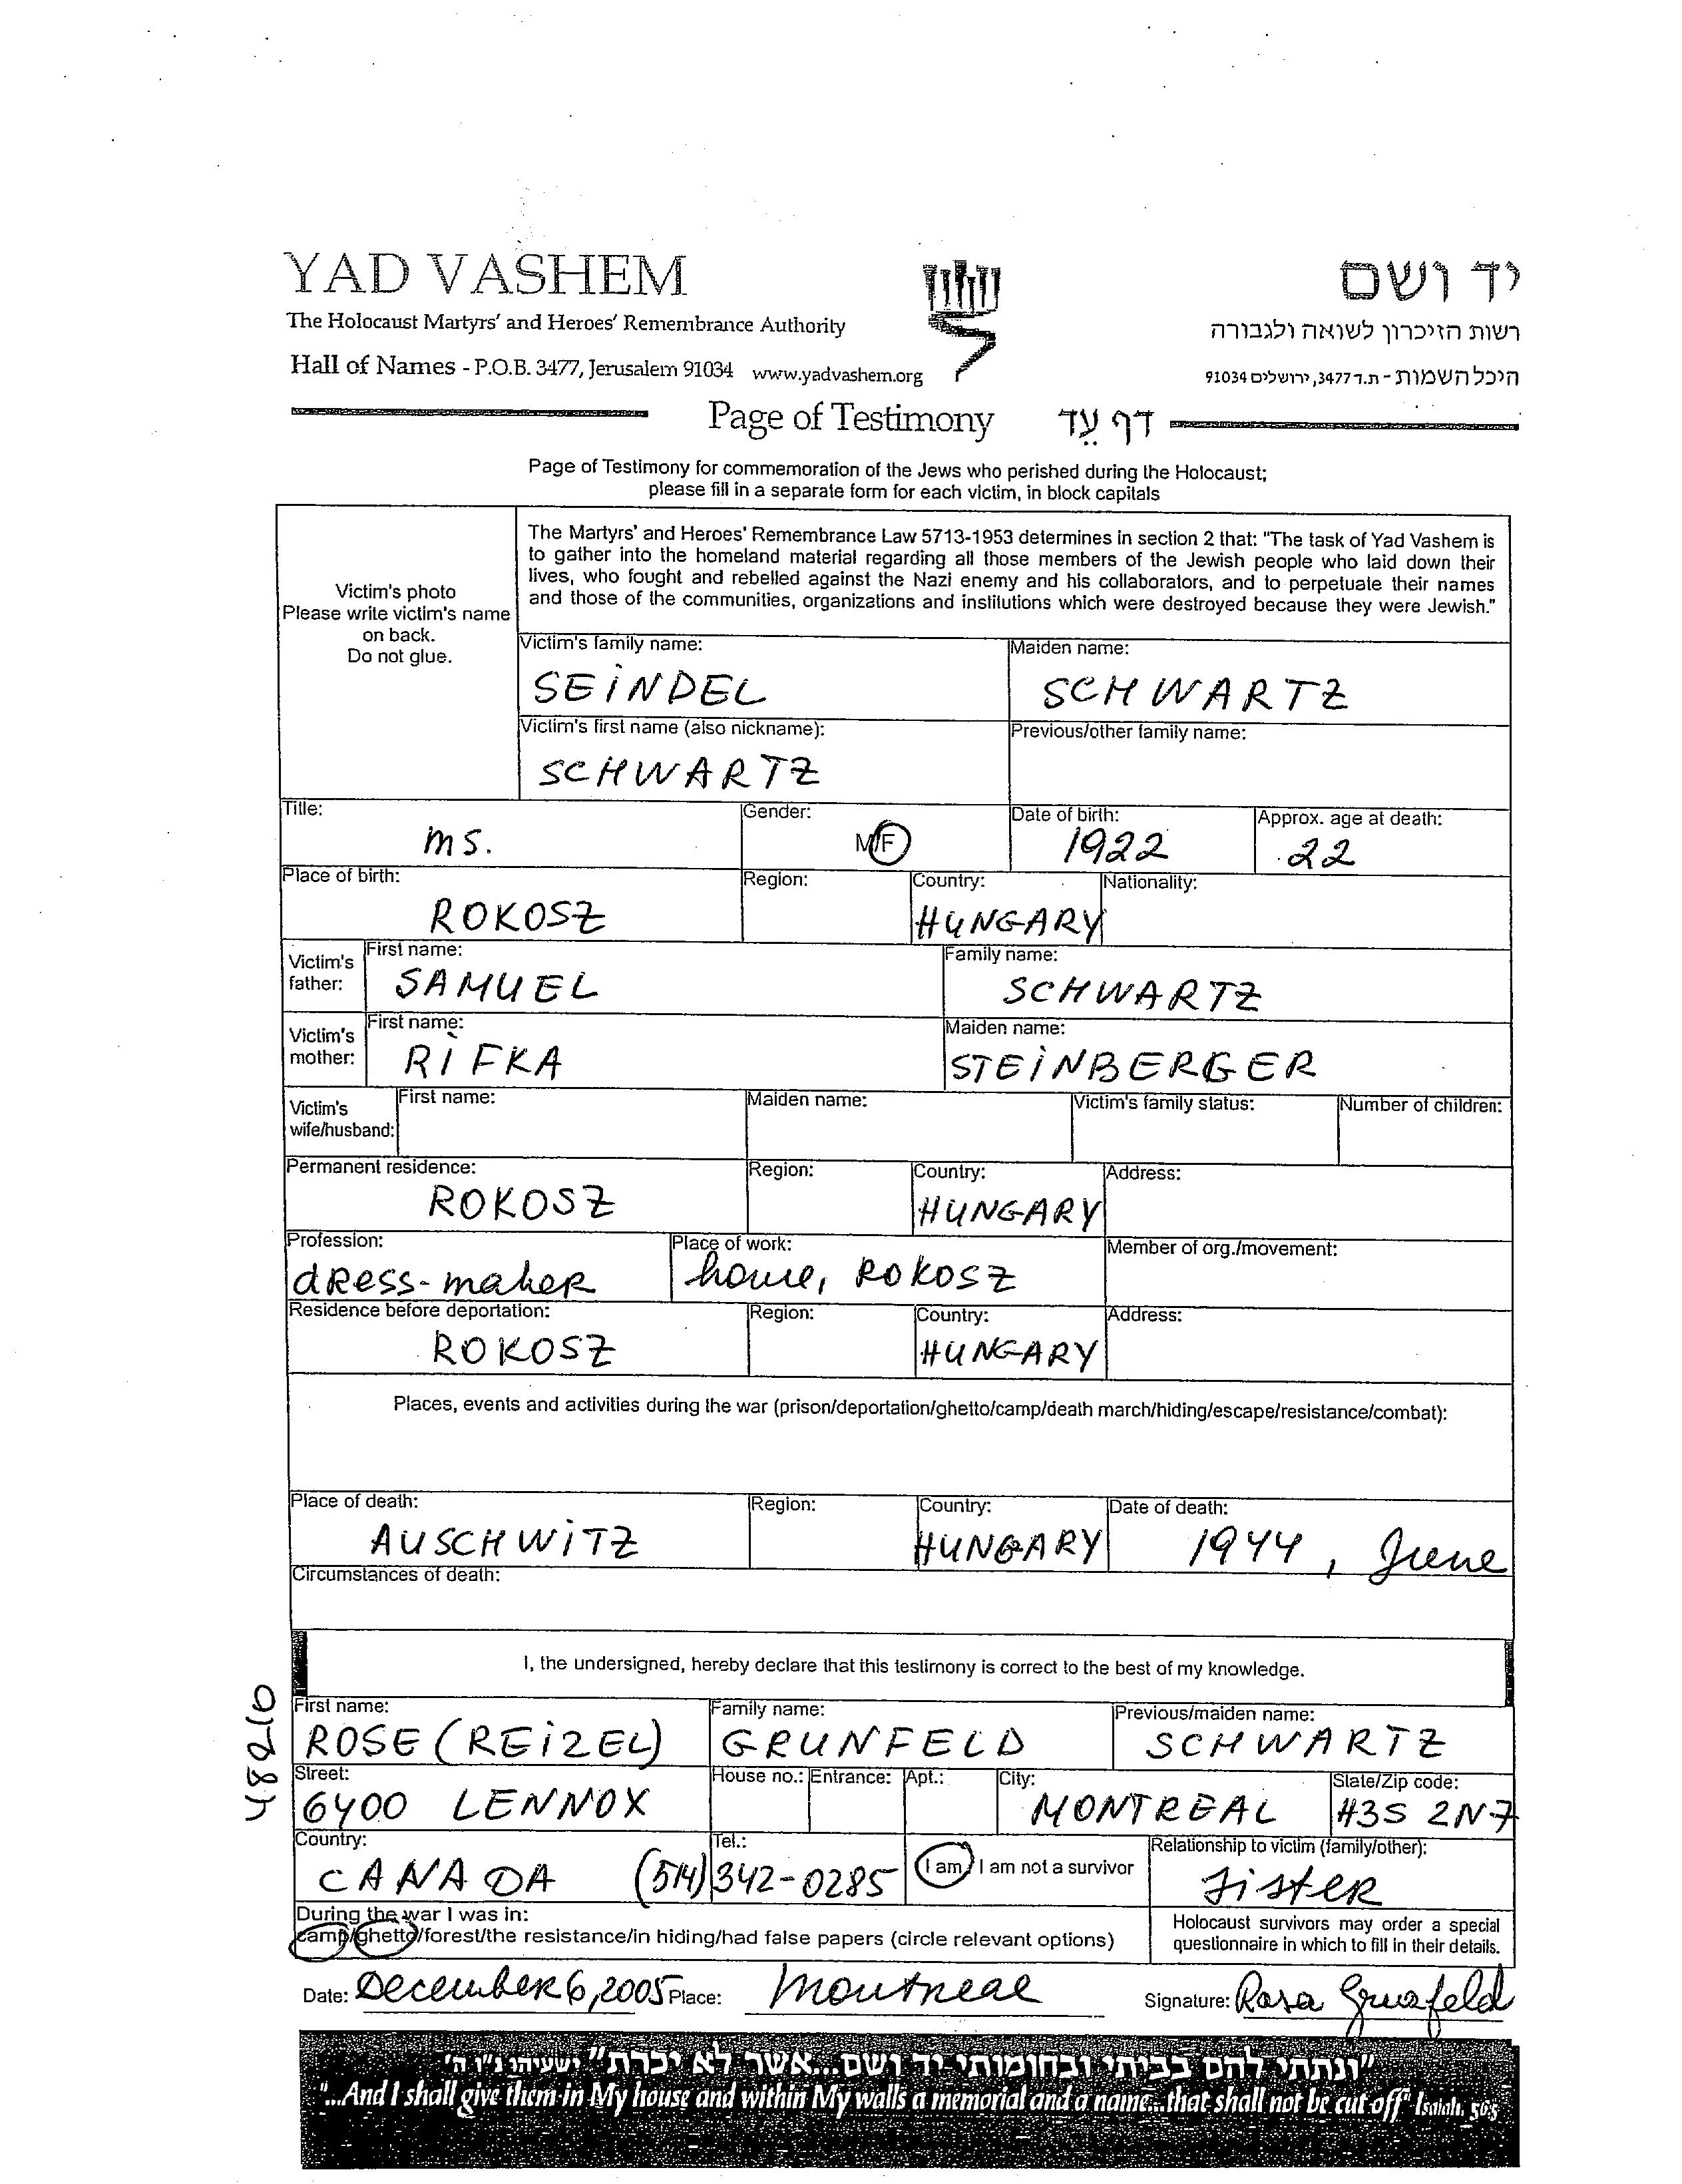 YAD VASHEM
יד ושם
The Holocaust Martyrs' and Heroes' Remembrance Authority
רשות הזיכרון לשואה ולגבורה
Hall of Names - P.O.B. 3477, Jerusalem 91034 www.yadvashem.org
היכל השמות - ת.ד 3477, ירושלים 91034
Page of Testimony דף עֵד
Page of Testimony for commemoration of the Jews who perished during the Holocaust;
please fill in a separate form for each victim, in block capitals
Victim's photo
Please write victim's name
on back.
Do not glue.
The Martyrs' and Heroes' Remembrance Law 5713-1953 determines in section 2 that: "The task of Yad Vashem is
to gather into the homeland material regarding all those members of the Jewish people who laid down their
lives, who fought and rebelled against the Nazi enemy and his collaborators, and to perpetuate their names
and those of the communities, organizations and institutions which were destroyed because they were Jewish."
Victim's family name: Maiden name:
SEINDEL SCHWARTZ
Victim's first name (also nickname): Previous/other family name:
SCHWARTZ
Title: Gender: Date of birth: Approx. age at death:
MS. M/F 1922 22
Place of birth: Region: Country: Nationality:
ROKOSZ HUNGARY
Victim's father: First name: Family name:
SAMUEL SCHWARTZ
Victim's mother: First name: Maiden name:
RIFKA STEINBERGER
Victim's wife/husband: First name: Maiden name: Victim's family status: Number of children:
Permanent residence: Region: Country: Address:
ROKOSZ HUNGARY
Profession: Place of work: Member of org./movement:
dRess-makeR home, ROKOSZ
Residence before deportation: Region: Country: Address:
ROKOSZ HUNGARY
Places, events and activities during the war (prison/deportation/ghetto/camp/death march/hiding/escape/resistance/combat):
Place of death: Region: Country: Date of death:
AUSCHWITZ HUNGARY 1944, June
Circumstances of death:
I, the undersigned, hereby declare that this testimony is correct to the best of my knowledge.
48210
First name: Family name: Previous/maiden name:
ROSE (REIZEL) GRUNFELD SCHWARTZ
Street: House no.: Entrance: Apt.: City: State/Zip code:
6400 LENNOX MONTREAL H3S 2N7
Country: Tel.: I am/ I am not a survivor Relationship to victim (family/other):
CANADA (514) 342-0285 SisteR
During the war I was in:
camp/ghetto/forest/the resistance/in hiding/had false papers (circle relevant options)
Holocaust survivors may order a special
questionnaire in which to fill in their details.
Date: DecembeR 6, 2005 Place: Montreal Signature: Rosa Grunfeld
"ונתתי להם בביתי ובחומותי יד ושם...אשר לא יכרת" ישעיהו נ"ו ה'
"...And I shall give them in My house and within My walls a memorial and a name...that shall not be cut off" Isaiah, 56:5